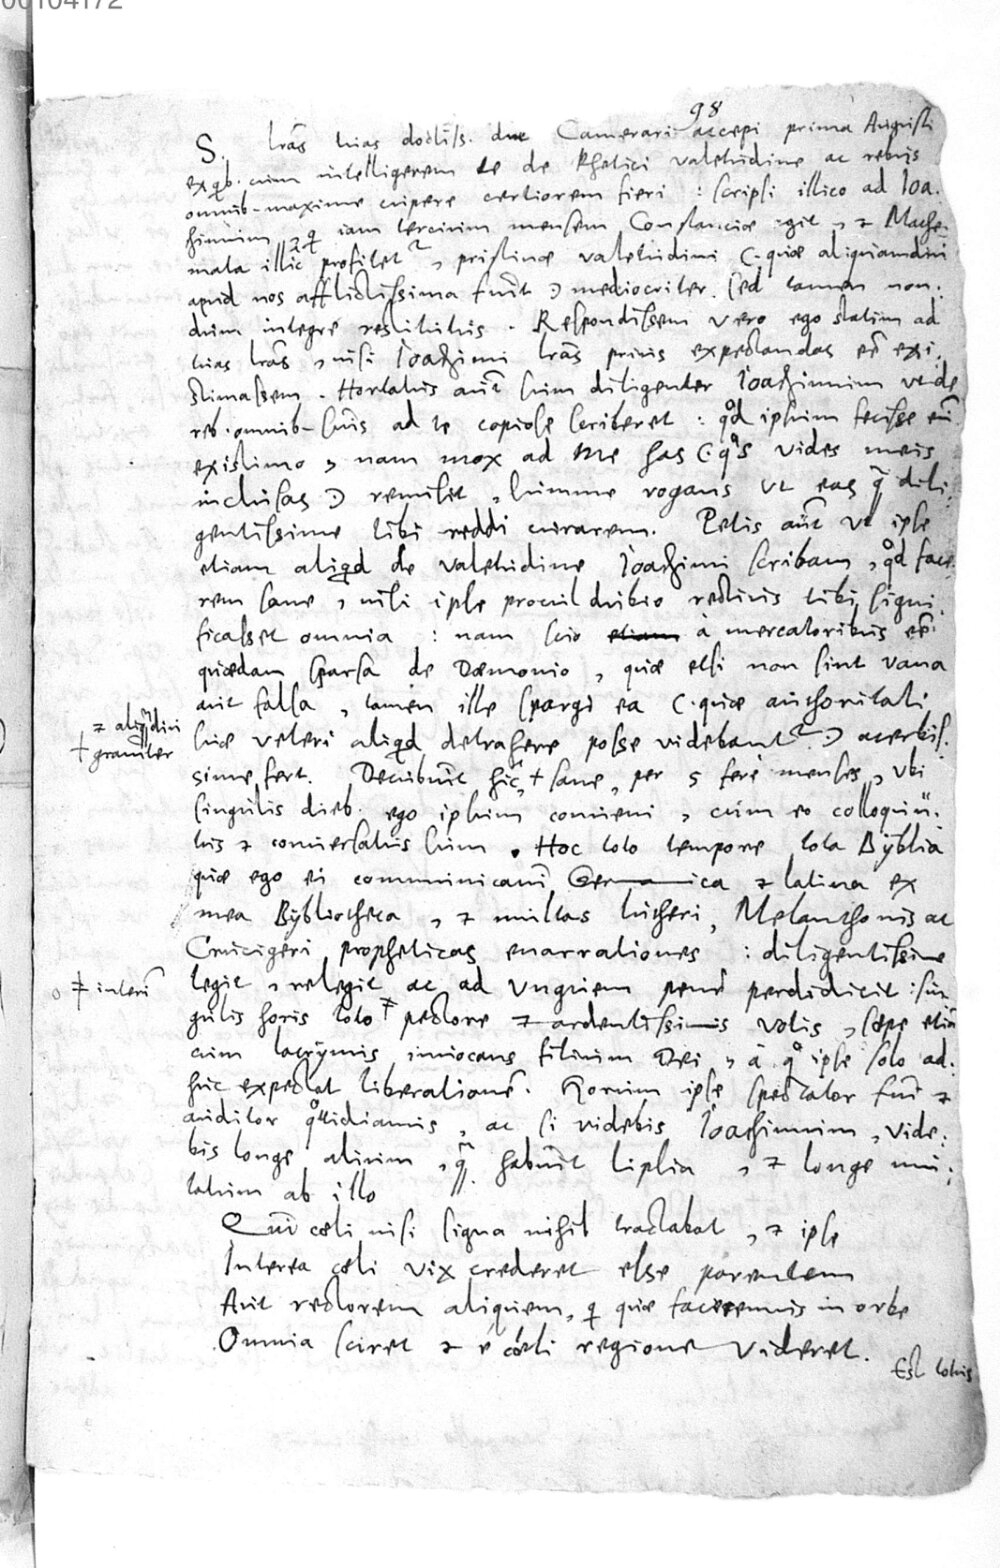 00104172
98
S. lrās tuas doctiss. dne Camerari accepi prima Augusti
ex qb. cum intelligerem te de Rhetici valetudine ac rebus
omnib. maxime cupere certiorem fieri : scripsi illico ad Ioa-
himum, q iam tercium mensem Constanciæ agit, & Mathe-
mata illic profitet, pristinæ valetudini (: quæ aliquamdiu
apud nos afflictissima fuit :) mediocriter. sed tamen non-
dum integrè restitutus. Respondissem vero ego statim ad
tuas lrās, nisi Ioachimi lrās prius expectandas eē exi-
stimassem. Hortatus aūt sum diligenter Ioachimum vt de
reb. omnib. suis ad te copiose scriberet : qd ipsum fecisse eū
existimo, nam mox ad me has (: qs vides meis
inclusas :) remisit, summe rogans vt eas q dili-
gentissime tibi reddi curarem. Petis aūt vt ipse
etiam aliqd de valetudine Ioachimi scribam, qd face-
rem sane, nisi ipse procul dubio rectius tibi signi-
ficasset omnia : nam scio etiam à mercatoribus eē
quædam sparsa de Dæmonio, quæ etsi non sint vana
aut falsa, tamen ille spargi ea (: quæ authoritati
suæ veteri aliqd detrahere posse videbant :) acerbis-
sime fert. Decubuit hic, + sane, per 5 ferè menses, vbi
& aliqdiu
+ grauiter
singulis dieb. ego ipsum conueni, cum eo colloquū-
tus & conuersatus sum. Hoc toto tempore tota Byblia
quæ ego ei communicaui Germanica & latina ex
mea Bybliotheca, & multas lutheri, Melanthonis ac
Crucigeri propheticas enarrationes : diligentissime
legit, relegit ac ad vnguem penè perdidicit : sin-
‡ interī
gulis horis toto ‡ pectore & ardentissimis votis, sæpe etiā
cum lacrymis inuocans filium Dei, à q ipse solo ad-
huc expectat liberationē. Horum ipse spectator fui &
auditor qtidianus, ac si videbis Ioachimum, vide-
bis longe alium, q habuit lipsia, & longe mu-
tatum ab illo
Qui cœli nisi signa nihil tractabat, & ipse
Interea cœli vix crederet esse parentem
Aut rectorem aliquem, q quæ faceremus in orbe
Omnia sciret & è cœli regione videret.
Est totus